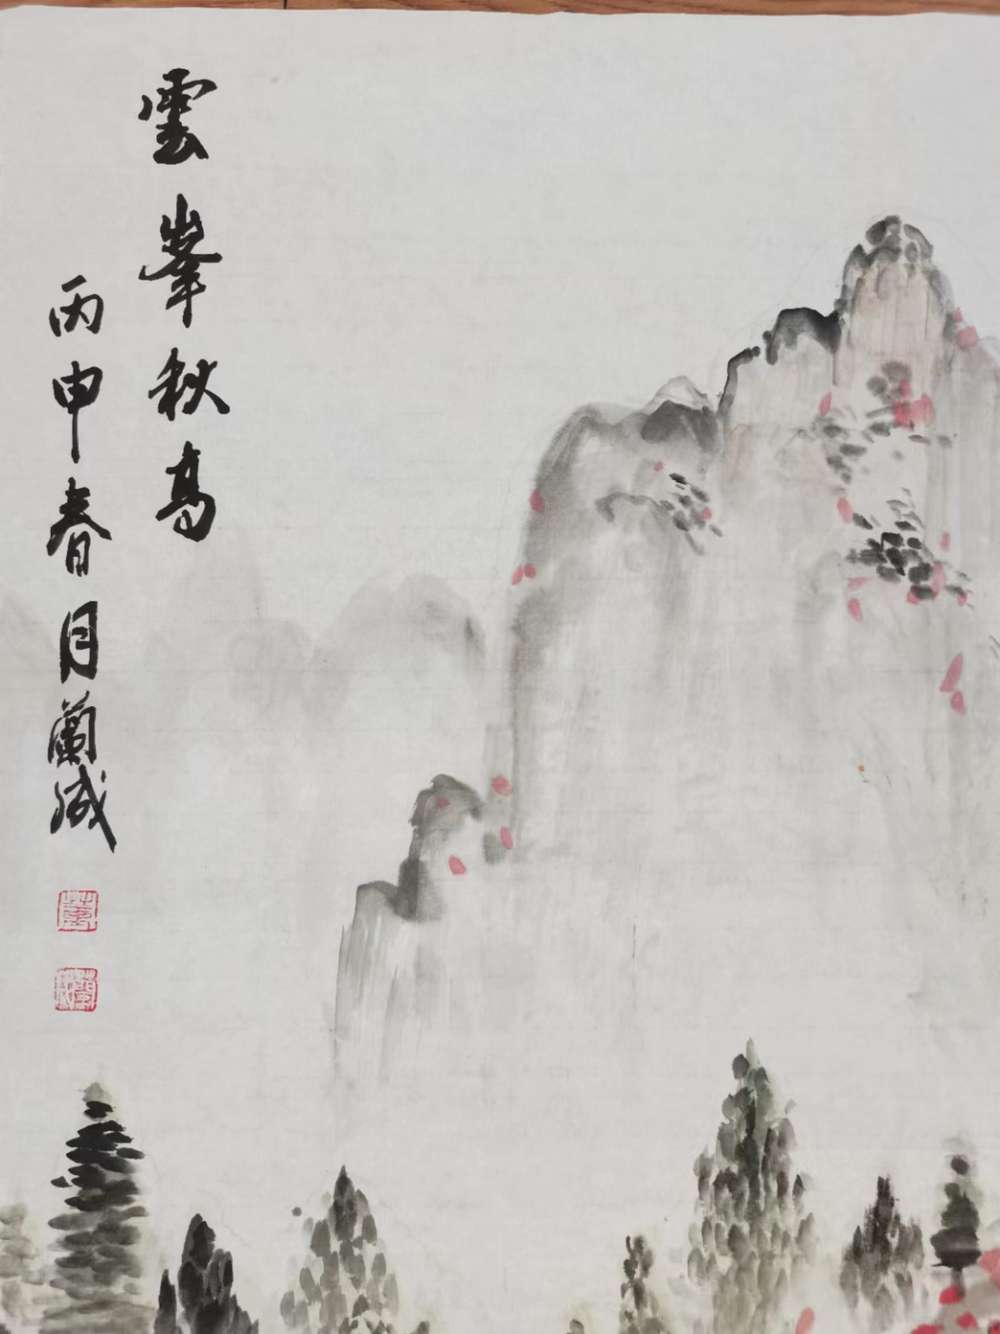 雲峯秋高
丙申春月蘭成